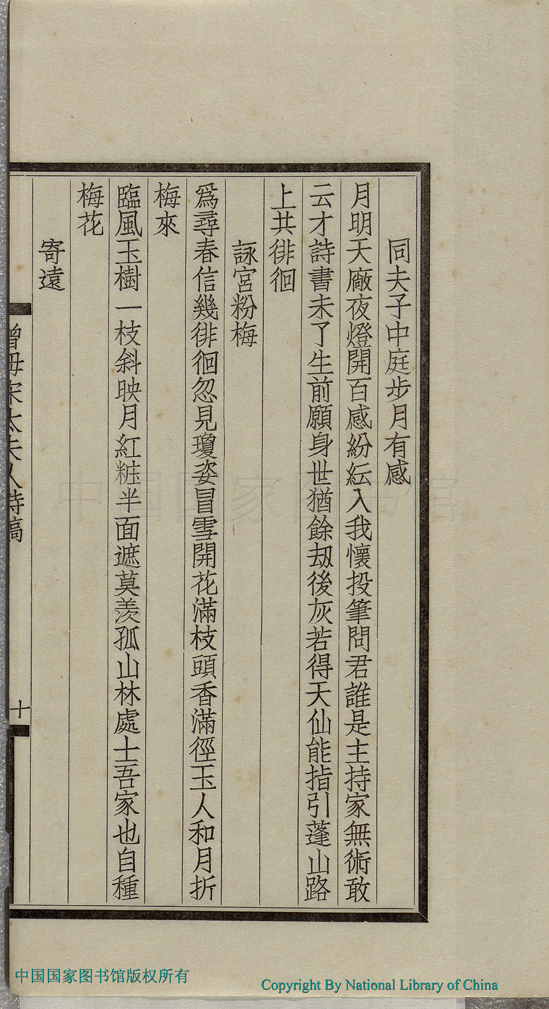 同夫子中庭步月有感
月明天廠夜燈開百感紛紜入我懷投筆問君誰是主持家無術敢
云才詩書未了生前願身世猶餘刼後灰若得天仙能指引蓬山路
上共徘徊
詠宮粉梅
爲尋春信幾徘徊忽見瓊姿冒雪開花滿枝頭香滿徑玉人和月折
梅來
臨風玉樹一枝斜映月紅粧半面遮莫羨孤山林處士吾家也自種
梅花
寄遠
曾母宋太夫人詩稿
十
中国国家图书馆
中国国家图书馆版权所有
Copyright By National Library of China